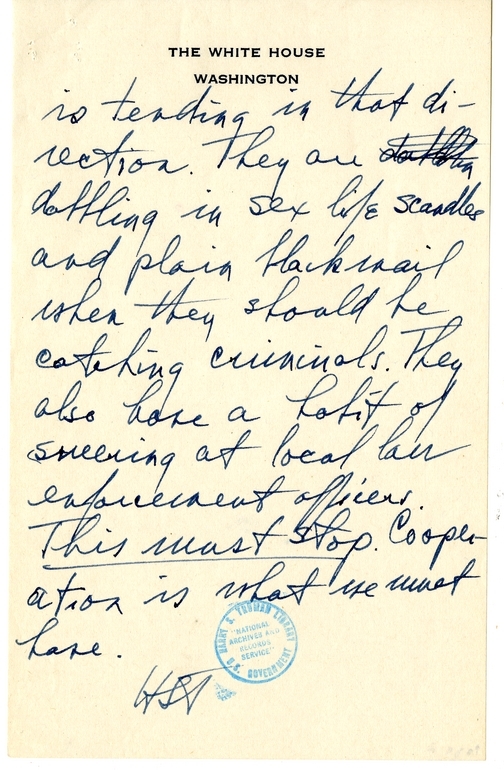 THE WHITE HOUSE
WASHINGTON
is tending in that di-
rection. They are
dabbling in sex life scandles
and plain blackmail
when they should be
catching criminals. They
also have a habit of
sneering at local law
enforcement officers.
This must stop. Cooper-
ation is what we must
have.
HST
HARRY S. TRUMAN LIBRARY
"NATIONAL
ARCHIVES AND
RECORDS
SERVICE"
U.S. GOVERNMENT